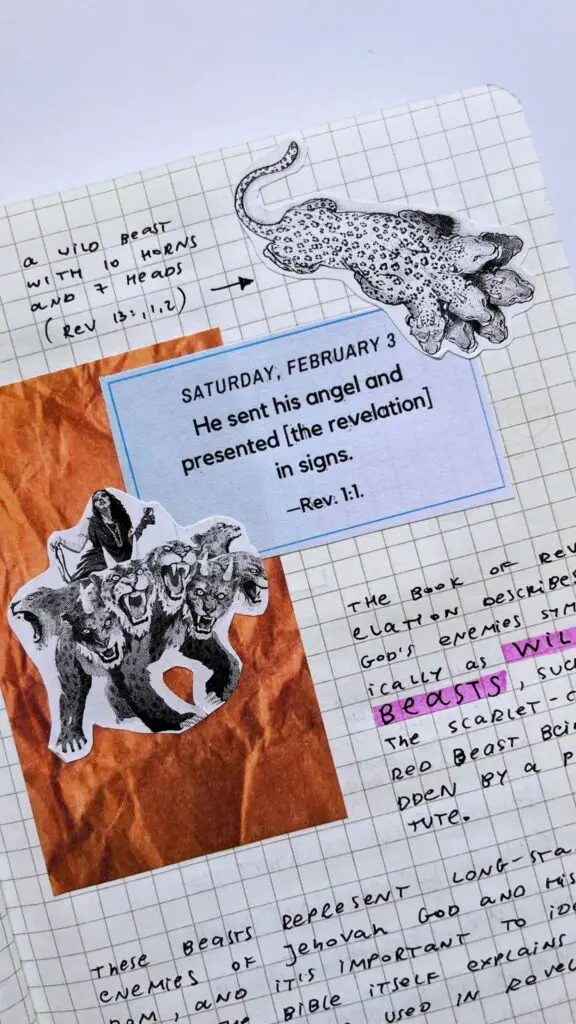 a wild beast
with 10 horns
and 7 heads
(Rev 13:,1,2)
SATURDAY, FEBRUARY 3
He sent his angel and
presented [the revelation]
in signs.
—Rev. 1:1.
The book of Rev
elation describes
God's enemies sym
ically as wil
beasts, suc
the scarlet-c
red beast bei
dden by a p
tute.
These beasts represent long-sta
enemies of Jehovah God and His
dom, and it's important to ide
the Bible itself explains
used in Revel